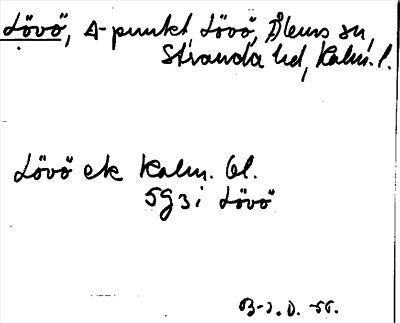 Lövö, Δ-punkt, Lövö, Ålems sn,
Stranda hd, Kalm. l.
Lövö ek Kalm. bl.
5G3i Lövö
B-s.D. -56.